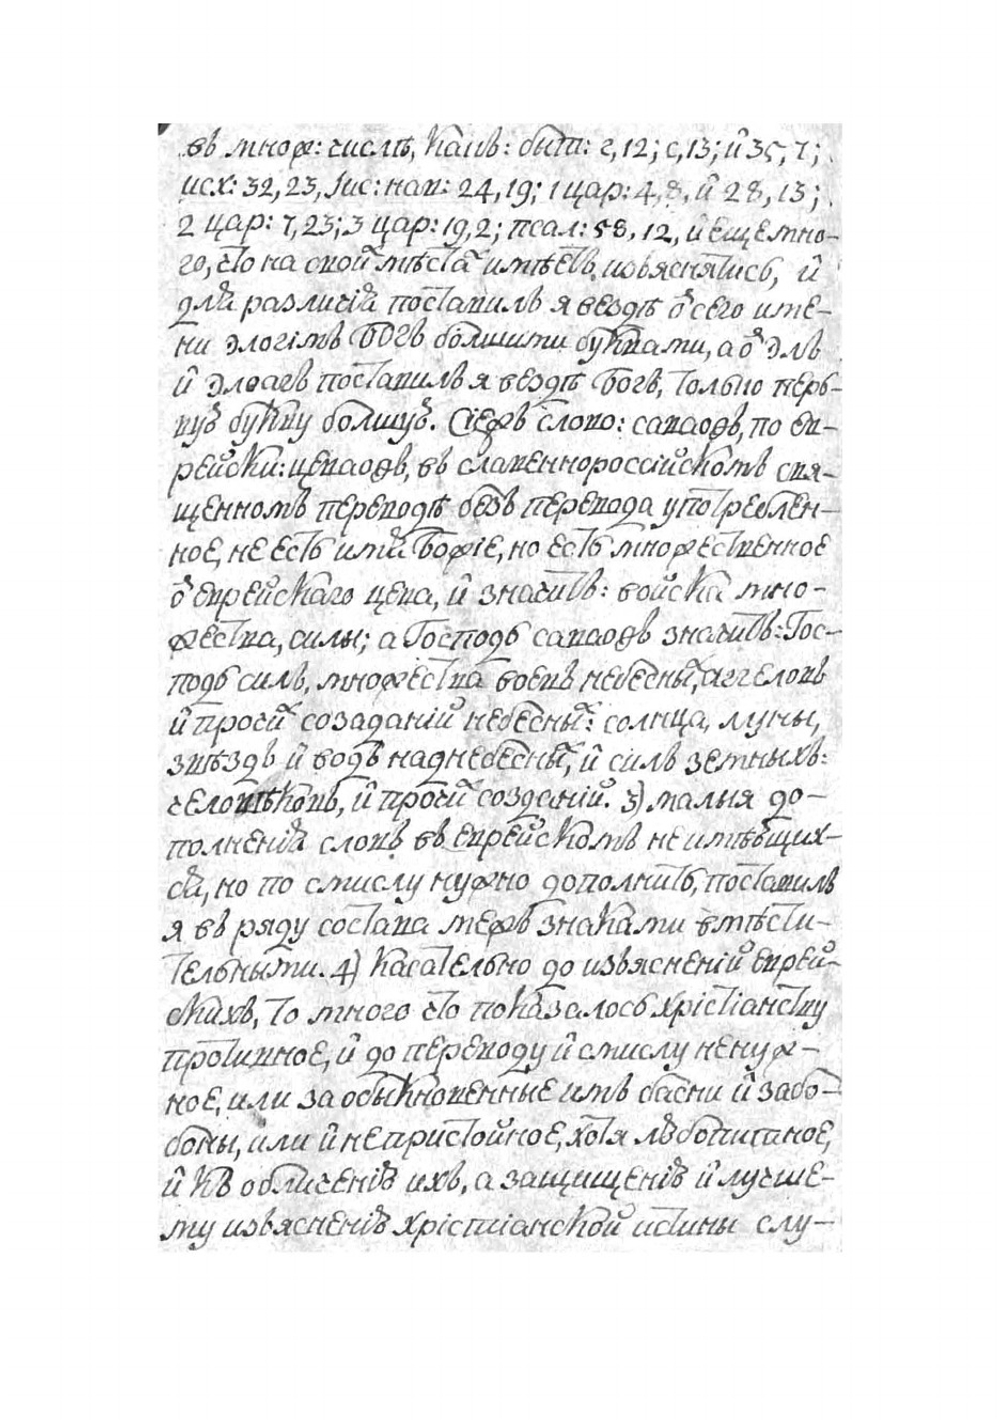 въ множ: числѣ, каиъ: быт: г, 12; с, 13; и 35, 7;
исх: 32, 23, Іис: нав: 24, 19; 1 цар: 4, 8, и 28, 13;
2 цар: 7, 23; 3 цар: 19, 2; псал: 58, 12, и еще мно-
го, что на своих мѣстах имѣетъ изъяснятись, и
для различія поставилъ я вездѣ ѿ сего име-
ни элогімъ Богъ болшими буквами, а ѿ элъ
и элоагъ поставилъ я вездѣ Богъ, только перь-
вую букву болшую. Сіежъ слово: саваоѳъ, по ев-
рейски: цеваоѳъ, въ славеннороссійскомъ свя-
щенномъ переводѣ безъ перевода употреблен-
ное, не есть имя Божіе, но есть множественное
ѿ еврейскаго цева, и значитъ: войска мно-
жества, силы; а Господь саваоѳъ значитъ: Гос-
подь силъ, множества воевъ небесных, аггеловъ
и прочих созаданій небесных: солнца, луны,
звѣздъ и водъ наднебесных, и силъ земныхъ:
человѣковъ, и прочих созданій. 3) малыя до-
полненія словъ въ еврейскомъ не имѣющих-
ся, но по смислу нужно дополнить, поставилъ
я въ ряду состава межъ знаками вмѣсти-
тельными. 4) касательно до изъясненій еврей-
скихъ, то много что показалось хрістіанству
противное, и до переводу и смислу ненуж-
ное, или за обыкновенные имъ басни и забо-
боны, или и непристойное, хотя любопитное,
и къ обличенію ихъ, а защищенію и лучше-
му изъясненію хрістіанской истины слу-